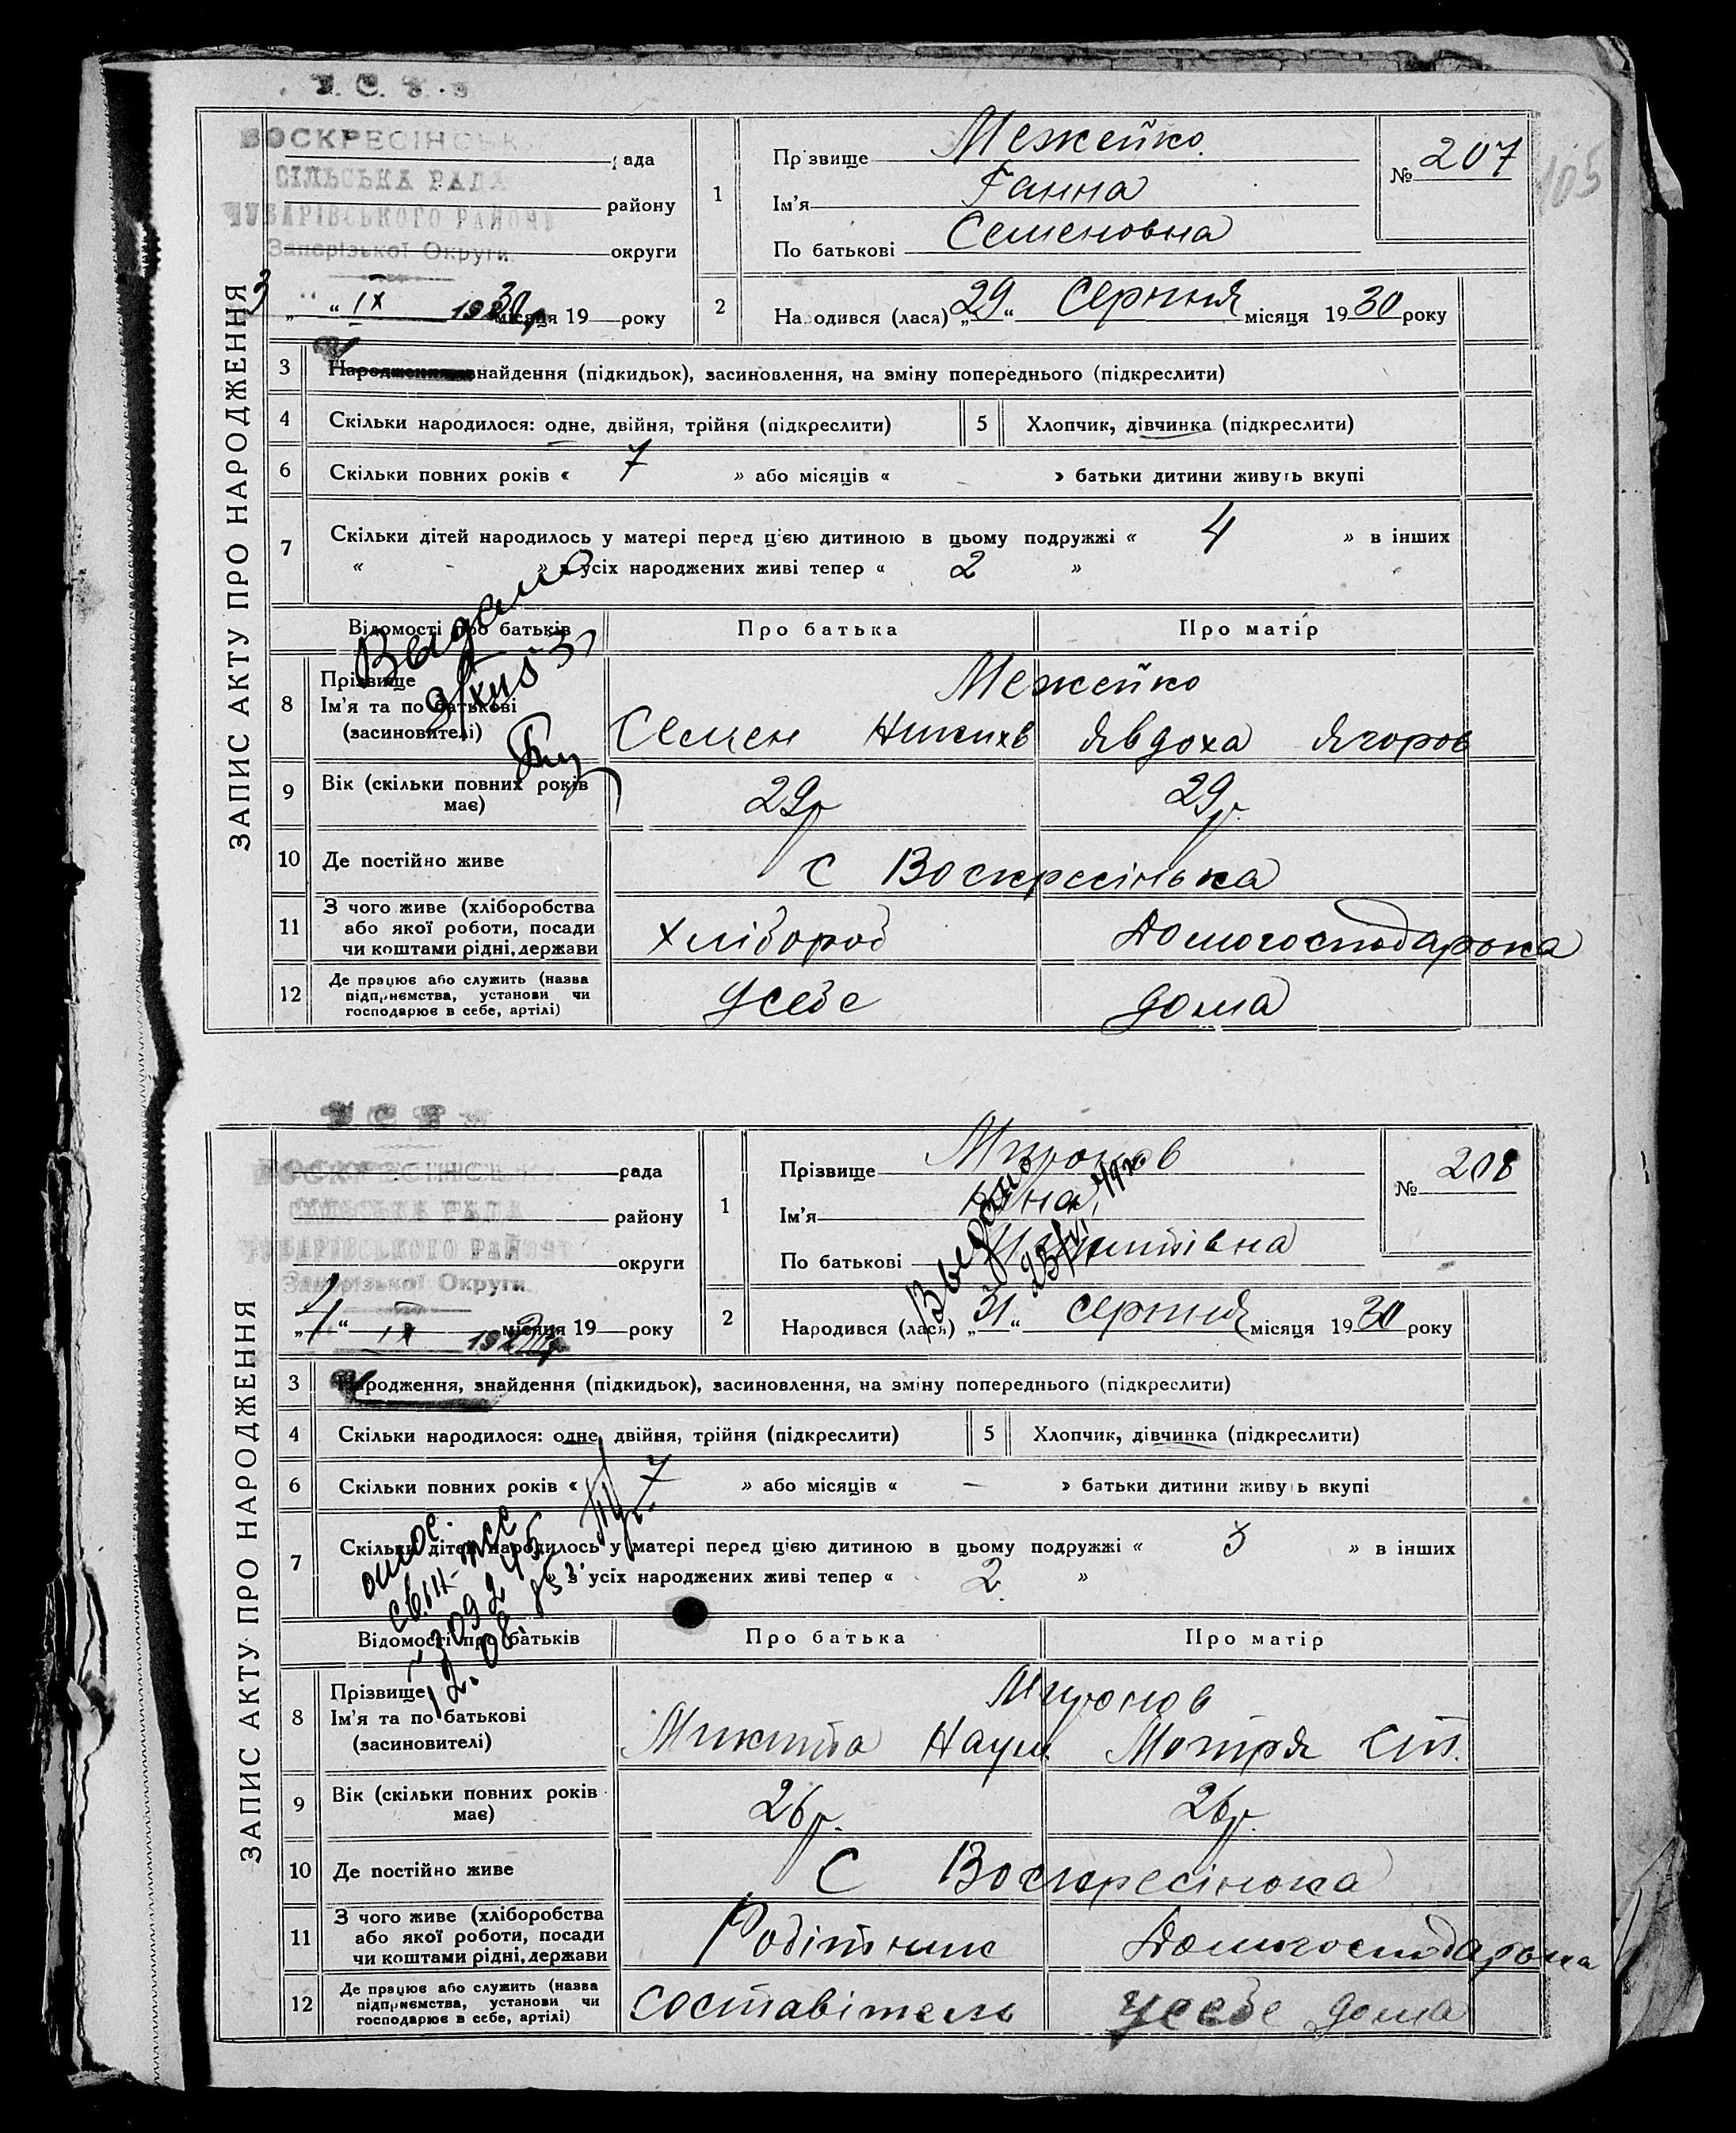 У. С. Р. Р.
ВОСКРЕСІНСЬК
СІЛЬСЬКА РАДА
ЧУБАРІВСЬКОГО РАЙОНУ
Запорізької Округи
рада
району
округи
3 " IX 1930 р місяця 19 року
ЗАПИС АКТУ ПРО НАРОДЖЕННЯ
1
Прізвище Межейко
Ім'я Ганна
По батькові Семеновна
№ 207
105
2
Народився (лася) „29“ серпня місяця 1930 року
3
Народження, знайдення (підкидьок), засиновлення, на зміну попереднього (підкреслити)
4
Скільки народилося: одне, двійня, трійня (підкреслити)
5
Хлопчик, дівчинка (підкреслити)
6
Скільки повних років « 7 » або місяців « - » батьки дитини живуть вкупі
7
Скільки дітей народилось у матері перед цією дитиною в цьому подружжі « 4 » в інших
« » з усіх народжених живі тепер « 2 »
Видано
Відомості про батьків
Про батька
Про матір
8
Прізвище
Ім'я та по батькові
(засиновителі)
Межейко
Семен
Явдоха Ягоров
9
Вік (скільки повних років має)
29р
29р.
10
Де постійно живе
с Воскресінька
11
З чого живе (хліборобства
або якої роботи, посади
чи коштами рідні, держави
Хлібороб
Домогосподарка
12
Де працює або служить (назва
підприємства, установи чи
господарює в себе, артілі)
усебе
дома
У С Р Р
ВОСКРЕСІНСЬКА
СІЛЬСЬКА РАДА
ЧУБАРІВСЬКОГО РАЙОНУ
Запорізької Округи
рада
району
округи
„4“ IX 1930р місяця 19 року
ЗАПИС АКТУ ПРО НАРОДЖЕННЯ
1
Прізвище Миронов
Ім'я
По батькові Микитівна
№ 208
Выдано
2
Народився (лася) „31“ серпня місяця 1930 року
3
Народження, знайдення (підкидьок), засиновлення, на зміну попереднього (підкреслити)
4
Скільки народилося: одне, двійня, трійня (підкреслити)
5
Хлопчик, дівчинка (підкреслити)
6
Скільки повних років « 7 » або місяців « - » батьки дитини живуть вкупі
7
Скільки дітей народилось у матері перед цією дитиною в цьому подружжі « 3 » в інших
» з усіх народжених живі тепер « 2 »
Відомості про батьків
Про батька
Про матір
8
Прізвище
Ім'я та по батькові
(засиновителі)
Миронов
Микита Наум. Мотря Сип.
9
Вік (скільки повних років має)
26р.
26р.
10
Де постійно живе
С Воскресінька
11
З чого живе (хліборобства
або якої роботи, посади
чи коштами рідні, держави
Робітник
Домогосподарка
12
Де працює або служить (назва
підприємства, установи чи
господарює в себе, артілі)
составітель
усебе дома